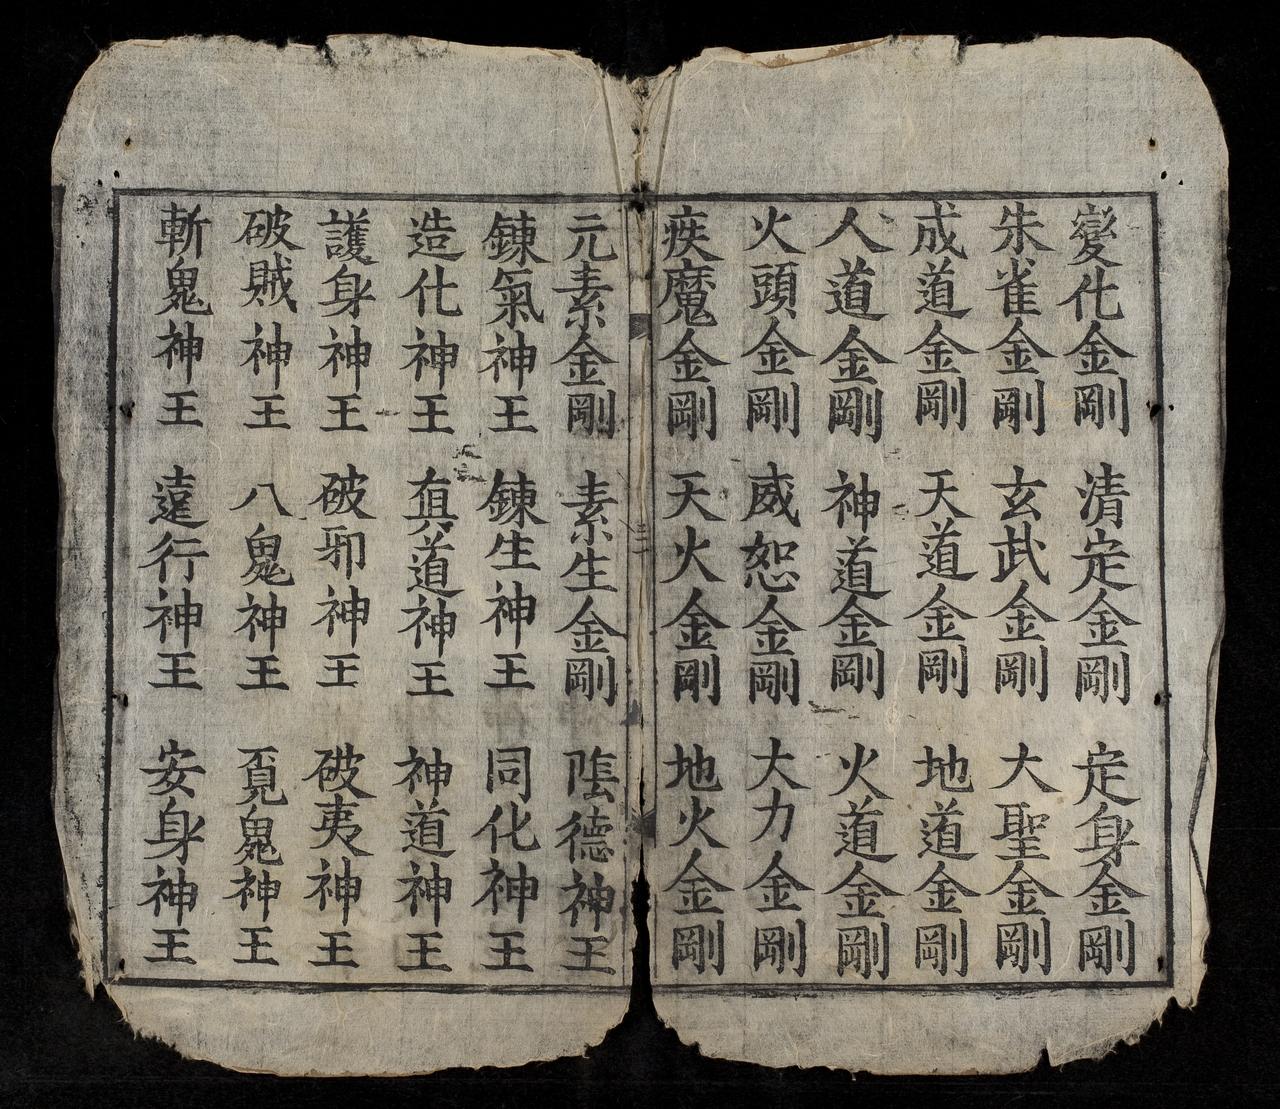 變化金剛 清定金剛 定身金剛
朱雀金剛 玄武金剛 大聖金剛
成道金剛 天道金剛 地道金剛
人道金剛 神道金剛 火道金剛
火頭金剛 威恕金剛 大力金剛
疾魔金剛 天火金剛 地火金剛
元素金剛 素生金剛 陰德神王
鍊氣神王 鍊生神王 同化神王
造化神王 眞道神王 神道神王
護身神王 破邪神王 破夷神王
破賊神王 八鬼神王 覔鬼神王
斬鬼神王 遠行神王 安身神王